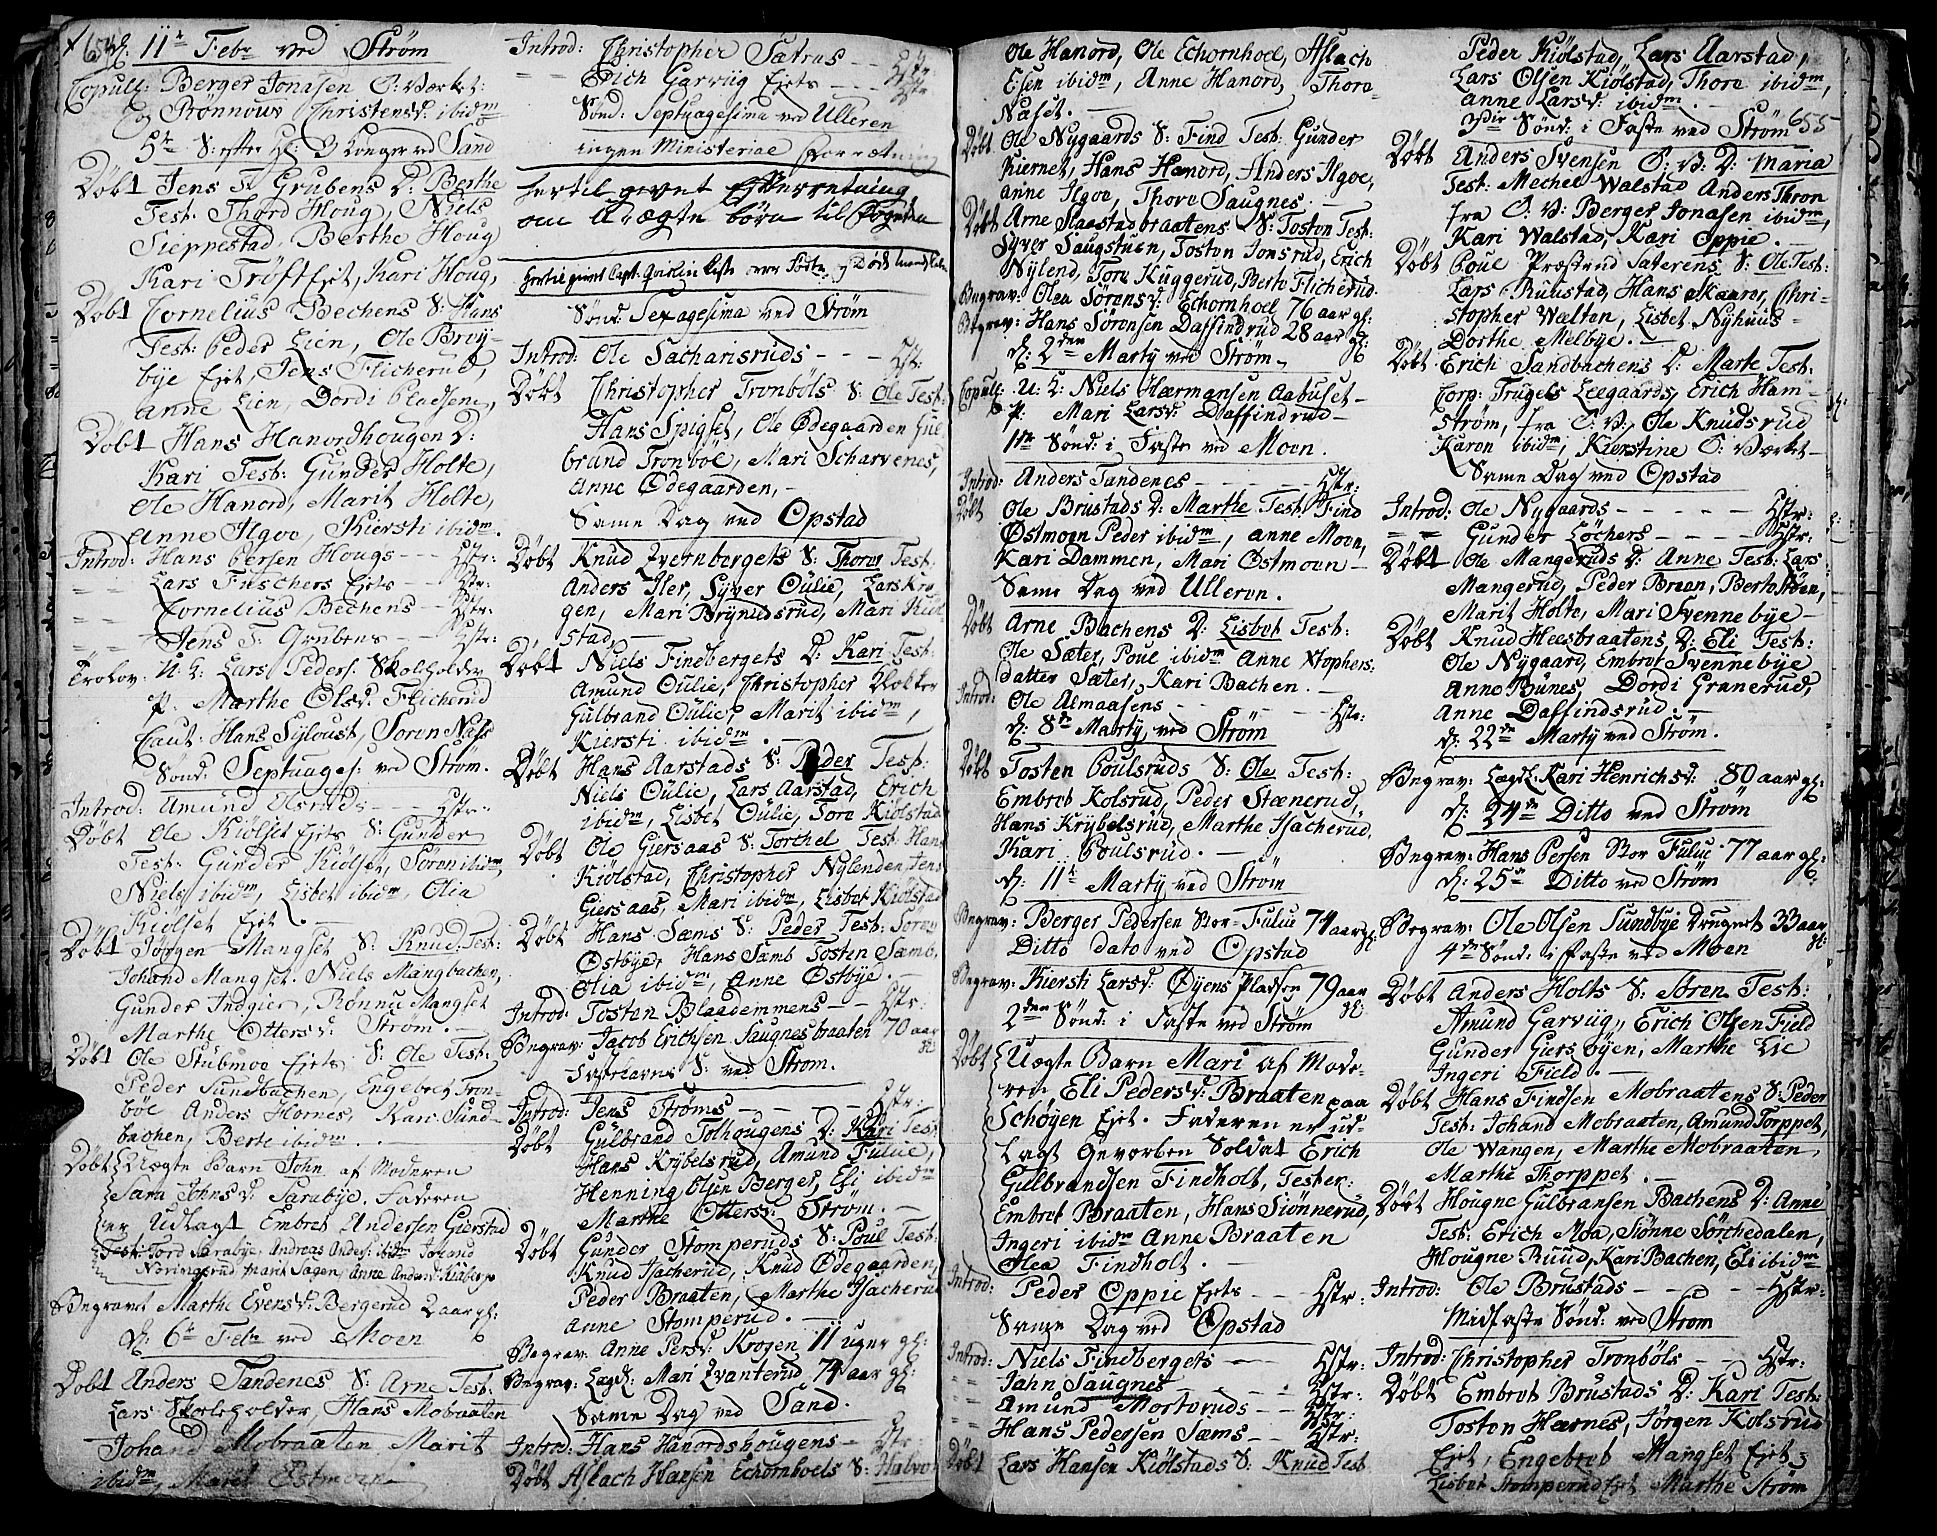 654
d: 11te Febr ved Strøm
Copul: Berger Jonasen O: Værket:
og Rønnoug Christensd: ibidm
5te S: efter H: 3 Konger ved Sand
Døbt Jens F: Grubens D: Berthe
Test: Thord Houg, Niels
Sieppestad, Berthe Houg
Kari Trøftejet, Kari Houg,
Døbt Cornelius Bechens S: Hans
Test: Peder Lien, Ole Bröy-
bye Ejet, Jens Flicherud,
Anne Lien, Dordi Pladsene,
Døbt Hans Hanordhougen D:
Kari Test: Gunder Holte,
Ole Hanord, Marit Holte,
Anne Ilgoe, Kiersti ibidm.
Introd: Hans Persen Hougs - - - Hstr:
= = Lars Fuschers Ejets - - Hstr:
= = Cornelius Bechens - - Hstr:
= = Jens F: Grubens - - Hstr:
Trolov: U: K: Lars Peders: Skoleholder
P. Marthe Olsd: Flicherud
Caut: Hans Syloust, Søren Næss
Sønd: Septuages: ved Strøm.
Introd: Amund Olsruds - - - Hstr:
Døbt Ole Kiölset Ejets S: Gunder
Test: Gunder Kiölset, Sören ibidm,
Niels ibidm, Lisbet ibidm, Olia
Kiölset Ejet.
Døbt Jörgen Mangset S: Knud Test:
Johand Mangset, Niels Mangbachen,
Gunder Indgier, Rønnu Mangset
Marthe Ottersd: Strøm. -
Døbt Ole Stubmoe Ejets S: Ole Test:
Peder Sundbachen, Engebret Tron-
böe Anders Hornes, Kari Sund-
bachen, Berte ibidm. -
Døbt Uægte Barn John af Moderen
Sara Johnsd: Sarabÿe. Faderen
er Udlagt Embret Andersen Gierstad
Test: Tord Sarabye, Andreas Anders: ibidm Johand
Noringsrud Marit Sagen, Anne Andersd:
Begravet Marthe Evensd: Bergerud 2 aar gl:
d: 6te Febr ved Moen
Døbt Anders Tandenes S: Arne Test:
Lars Skoleholder, Hans Mobraaten
Johand Mobraaten Marit
ibidm, Marit Østmoen
Introd: Christopher Sætrus - - Hstr
= = Erich Garviig Ejets - - - Hstr
Sønd: Septuagesima ved Ulleren
ingen Ministerial Forretning
hertil givet Efterretning
om Uægte børn til Fogden
hertil givet Capt: Qværlin Liste over Födte og Döde
Sønd: Sexagesima ved Strøm
Introd: Ole Sacharisruds - - - Hstr:
Døbt Christopher Tronböls S: Ole Test:
Hans Spigset, Ole Ødegaarden Gul-
brand Tronböl, Mari Scharvenes,
Anne Ødegaarden, -
Same Dag ved Opstad
Døbt Knud Qvernbergets S: Thorer Test:
Anders Iler, Syver Oulie, Lars Kro-
gen, Mari Brynildsrud, Mari Kiöl-
stad, -
Døbt Niels Findbergets D: Kari Test:
Amund Oulie, Christopher Klokker
Gulbrand Oulie, Marit ibidm,
Kiersti ibidm. -
Døbt Hans Aarstads S: Peder Test:
Niels Oulie, Lars Aarstad, Erich
ibidm, Lisbet Oulie, Tora Kiölstad
Døbt Ole Giersaas S: Torchel Test: Hans
Kiölstad, Christopher Nylenden, Jens
Giersaas, Mari ibidm, Lisbet Kiölstad
Døbt Hans Sæms S: Peder Test: Soren
Østbÿe, Hans Sæmb Tosten Sæmb.
Olia ibidm, Anne Østbÿe. -
Introd: Tosten Blaademmens - - Hstr:
Begrav: Jacob Erichsen Saugnesbraaten 70 aar gl:
Fastelavns S: ved Strøm.
Introd: Jens Strøms - - - - Hstr:
Døbt Gulbrand Tolhougens D: Kari Test:
Hans Krÿbelsrud, Amund Fulue,
Henning Olsen Berger, Eli ibidm
Marthe Ottersd: Strøm. -
Døbt Gunder Stomperuds S: Poul Test:
Knud Hacherud, Knud Ødegaarden,
Peder Braaten, Marthe Hacherud
Anne Stomperud. -
Begrav: Anne Persd: Krogen 11 uger gl:
Begrav: Lægdl: Mari Qvanterud 74 aar gl:
Same Dag ved Sand.
Introd: Hans Hanordshougens - Hstr
Døbt Aslach Hansen Echornhoels S: Halvor
Ole Hanord, Ole Echornhoel, Aslach
Elsen ibidm, Anne Hanord, Thore
Naset. -
Døbt Ole Nygaards S: Find Test: Gunder
Kiernet, Hans Hanord, Anders Ilgoe,
Anne Ilgoe, Thore Saugnes. -
Døbt Arne Slaastadbraatens S: Toston Test:
Syver Saugstuen, Toston Jonsrud, Erich
Nylend, Tore Kuggerud, Berte Flicherud.
Begrav: Olea Sørensd: Echornhoel 76 aar gl:
Begrav: Hans Sörensen Daffindrud 28 aar gl:
d: 2den Martÿ ved Strøm
Copul: U: K: Niels Hærmansen Aabuset-
P. Mari Larsd: Daffindrud -
1te Sønd: i Faste ved Moen.
Introd: Anders Tandenes - - - - Hstr:
Døbt Ole Brustads D: Marthe Test: Find
Østmoen Peder ibidm, Anne Moen,
Kari Dammen, Mari Østmoen -
Same Dag ved Ulleron.
Døbt Arne Bachens D: Lisbet Test:
Ole Sæter, Poul ibidm Anne Xtophers-
datter Sæter, Kari Bachen. -
Introd: Ole Almaasens - - - - Hstr:
d: 8de Martÿ ved Strøm
Døbt Tosten Poulsruds S: Ole Test:
Embret Kolsrud, Peder Stænerud,
Hans Krÿbelsrud, Marthe Hacherud,
Kari Poulsrud. -
d: 11te Martÿ ved Strøm
Begrav: Berger Pedersen Stor-Fulue 74 aar gl:
Ditto dato ved Opstad
Begrav: Kiersti Larsd: Øyens Pladsen 79 aar gl:
2den Sønd: i Faste ved Strøm
Døbt Uægte Barn Mari af Mode-
ren Eli Pedersd: Braaten paa
Schöyen Ejet. Faderen er ud-
lagt Gevorben Soldat Erich
Gulbrandsen Findholt, Tester:
Embret Braaten, Hans Siönnerud,
Ingeri ibidm Anne Braaten
Olea Findholt. -
Introd: Peder Oppie Ejets - - - Hstr:
Same Dag ved Opstad
Introd: Niels Findbergets - - Hstr:
= = Jahn Saugnes - - Hstr:
= = Amund Mortveruds - - Hstr:
= = Hans Pedersen Sæms - - Hstr:
Døbt Lars Hansen Kiölstads S: Knud Test
Peder Kiölstad, Lars Aarstad,
Lars Olsen Kiölstad, Thore ibidm,
Anne Larsd: ibidm. -
3die Sønd: i Faste ved Strøm 655
Døbt Anders Svensen O: V: D: Maria
Test: Mechel Walstad Anders Thron
fra O: V: Berger Jonasen ibidm,
Kari Walstad, Kari Oppie. -
Døbt Poul Præsterud Sæterens S: Ole Test:
Lars Ruustad, Hans Maurer, Chri-
stopher Wælton, Lisbet Nyhuus-
Dorthe Melbÿe. -
Døbt Erich Sandbachens D: Marte Test:
Corp: Trugels Leegaards, Erich Ham-
strøm, fra O: V: Ole Knudsrud
Karen ibidm, Kierstine O: Værket -
Same Dag ved Opstad
Introd: Ole Nygaards - - - - - Hstr:
= = Gunder Löchers - - - Hstr:
Døbt Ole Mangeruds D: Anne Test: Lars
Mangerud, Peder Breen, Berte Støen,
Marit Holte, Mari Svennebye -
Døbt Knud Heesbraatens D: Eli Test:
Ole Nÿgaard, Embret Svennebye
Anne Bunes, Dordi Granerud,
Anne Daffindsrud. -
d: 22de Martÿ ved Strøm.
Begrav: Lægdl: Kari Henrichsd: 80 aar gl:
d: 24de Ditto ved Strøm
Begrav: Hans Persen Stor Fulue 77 aar gl:
d: 25de Ditto ved Strøm
Begrav: Ole Olsen Sundbÿe 33 aar gl:
4de Sønd: i Faste ved Moen
Døbt Anders Holts S: Sören Test:
Amund Garviig, Erich Olsen Field
Gunder Giersöyen, Marthe Lie
Ingeri Field. -
Døbt Hans Findsen Mobraatens S: Peder
Test: Johand Mobraaten, Amund Torppet,
Ole Wangen, Marthe Mobraaten,
Marthe Thorppet. -
Døbt Hougne Gulbransen Bachens D: Anne
Test: Erich Moa, Siönne Sörchedalen,
Hougne Ruud, Kari Bachen, Eli ibidm
Introd: Ole Brustads - - - - Hstr:
Midfaste Sønd: ved Strøm
Introd: Christopher Tronböls - - Hstr:
Døbt Embret Brustads D: Kari Test:
Toston Harnes, Jørgen Kolsrud
Ejet, Engebret Mangset Ejets
Lisbet Stomperud Ejet Marthe Strøm